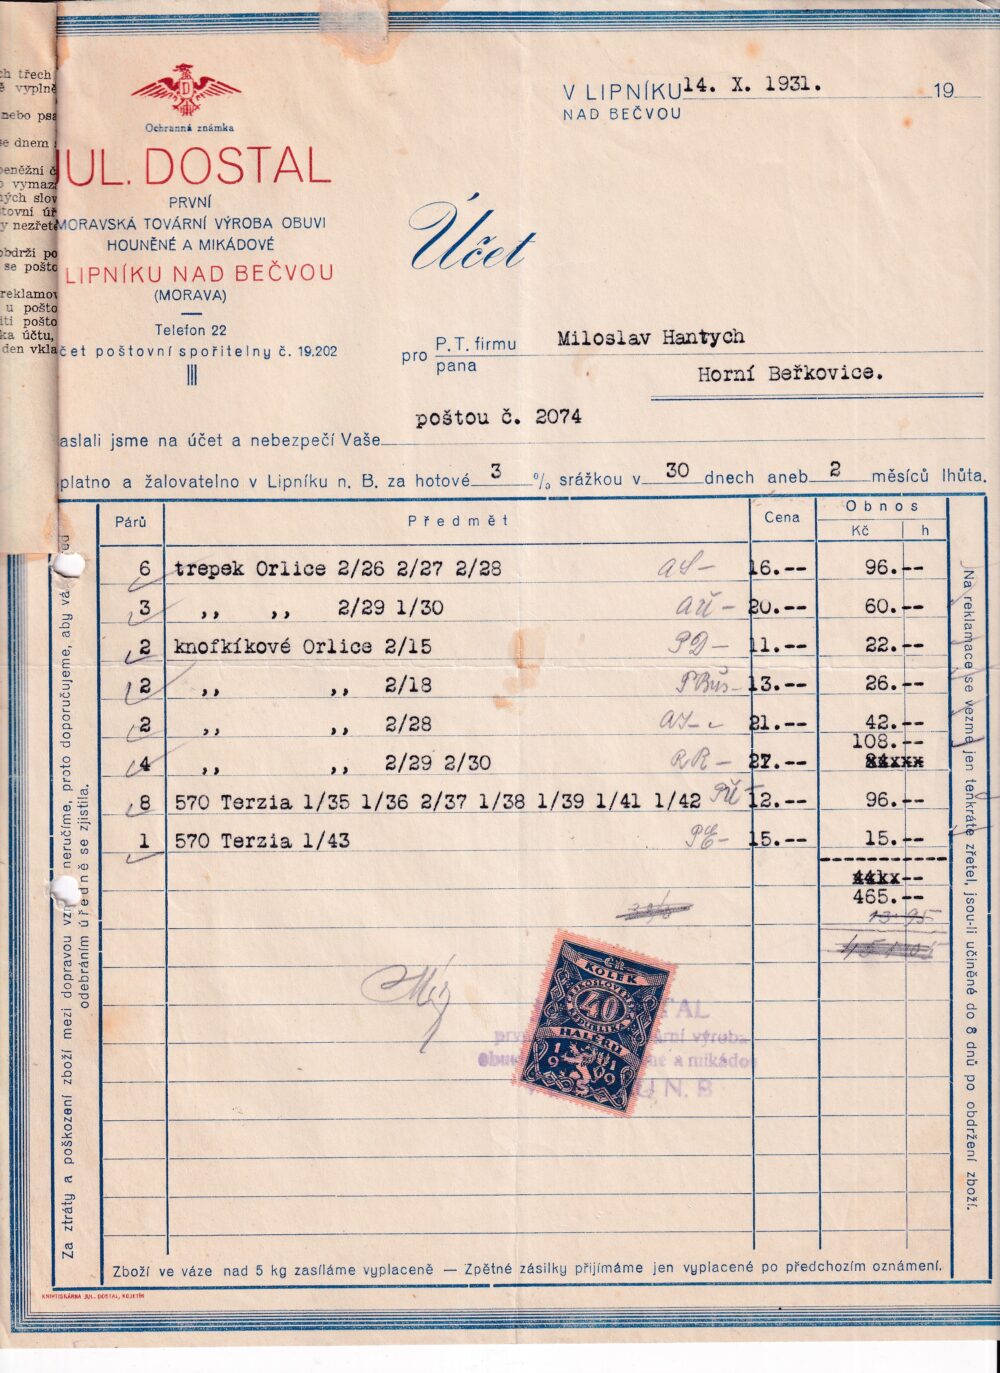 ch třech
ě vyplně
nebo psa
se dnem
peněžní č
vymaz
ých slov
tovní úř
y nezřet
obdrží po
se pošto
reklamov
u pošto
iti pošto
ka účtu,
den vkla
D
Ochranná známka
JUL. DOSTAL
PRVNÍ
MORAVSKÁ TOVÁRNÍ VÝROBA OBUVI
HOUNĚNÉ A MIKÁDOVÉ
LIPNÍKU NAD BEČVOU
(MORAVA)
Telefon 22
čet poštovní spořitelny č. 19.202
V LIPNÍKU 14. X. 1931. 19
NAD BEČVOU
Účet
pro P.T. firmu Miloslav Hantych
pana
Horní Beřkovice.
poštou č. 2074
aslali jsme na účet a nebezpečí Vaše
platno a žalovatelno v Lipníku n. B. za hotové 3 % srážkou v 30 dnech aneb 2 měsíců lhůta.
Párů Předmět Cena Obnos
Kč h
6 trepek Orlice 2/26 2/27 2/28 AS- 16.-- 96.--
3 ,, ,, 2/29 1/30 AŘ- 20.-- 60.--
2 knofkíkové Orlice 2/15 PD- 11.-- 22.--
2 ,, ,, 2/18 13.-- 26.--
2 ,, ,, 2/28 21.-- 42.--
108.--
4 ,, ,, 2/29 2/30 RR- 27.--
8 570 Terzia 1/35 1/36 2/37 1/38 1/39 1/41 1/42 12.-- 96.--
1 570 Terzia 1/43 PE- 15.-- 15.--
465.--
13.95
KOLEK
ČESKOSLOVENSKÁ
40
REPUBLIKA
HALÉŘŮ
1 9 1 9
TAL
prv rní výroba
obuv né a mikádov
U N. B
Za ztráty a poškození zboží mezi dopravou vz neručíme, proto doporučujeme, aby vá od
odebráním úředně se zjistila.
Na reklamace se vezme jen tenkráte zřetel, jsou-li učiněné do 8 dnů po obdržení zboží.
Zboží ve váze nad 5 kg zasíláme vyplaceně — Zpětné zásilky přijímáme jen vyplacené po předchozím oznámení.
KNIHTISKÁRNA JUL. DOSTAL, KOJETÍN